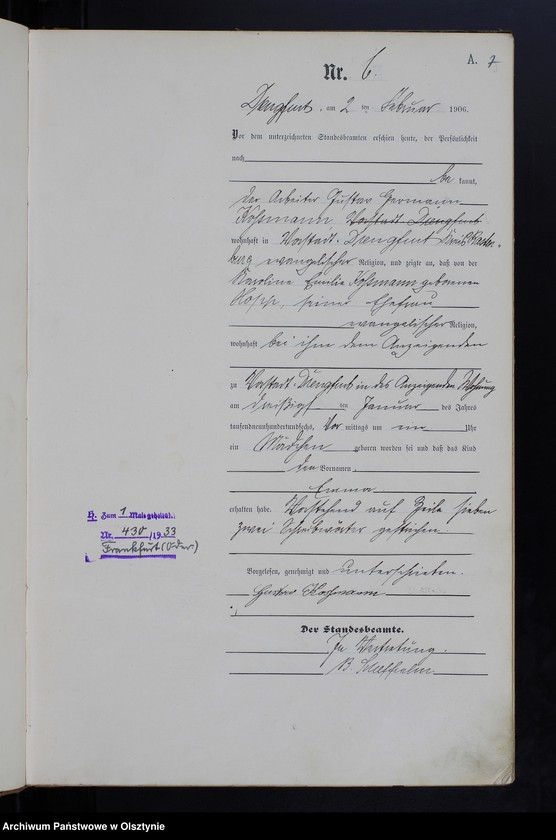 A. 7
Nr. 6.
Drengfurt, am 2 ten Februar 1906.
Vor dem unterzeichneten Standesbeamten erschien heute, der Persönlichkeit
nach
be kannt,
der Arbeiter Gustav Hermann
Koßmann, Vorstadt Drengfurt
wohnhaft in Vorstadt Drengfurt Kreis Rasten-
burg evangelischer Religion, und zeigte an, daß von der
Karoline Emilie Koßmann geborenen
seiner Ehefrau
evangelischer Religion,
wohnhaft bei ihm dem Anzeigenden
zu Vorstadt Drengfurt in des Anzeigenden Wohnung
am dreißigsten Januar des Jahres
tausendneunhundertundsechs, Vor mittags um ein Uhr
ein Mädchen geboren worden sei und daß das Kind
den Vornamen
Emma
erhalten habe. Vorstehend auf Zeile sieben
zwei Schreibwörter gestrichen.
Vorgelesen, genehmigt und unterschrieben.
Gustav Koßmann
Der Standesbeamte.
In Vertretung.
B.
H. Zum 1 Male geheirat.:
Nr. 430 /1933
Frankfurt (Oder)
Archiwum Państwowe w Olsztynie